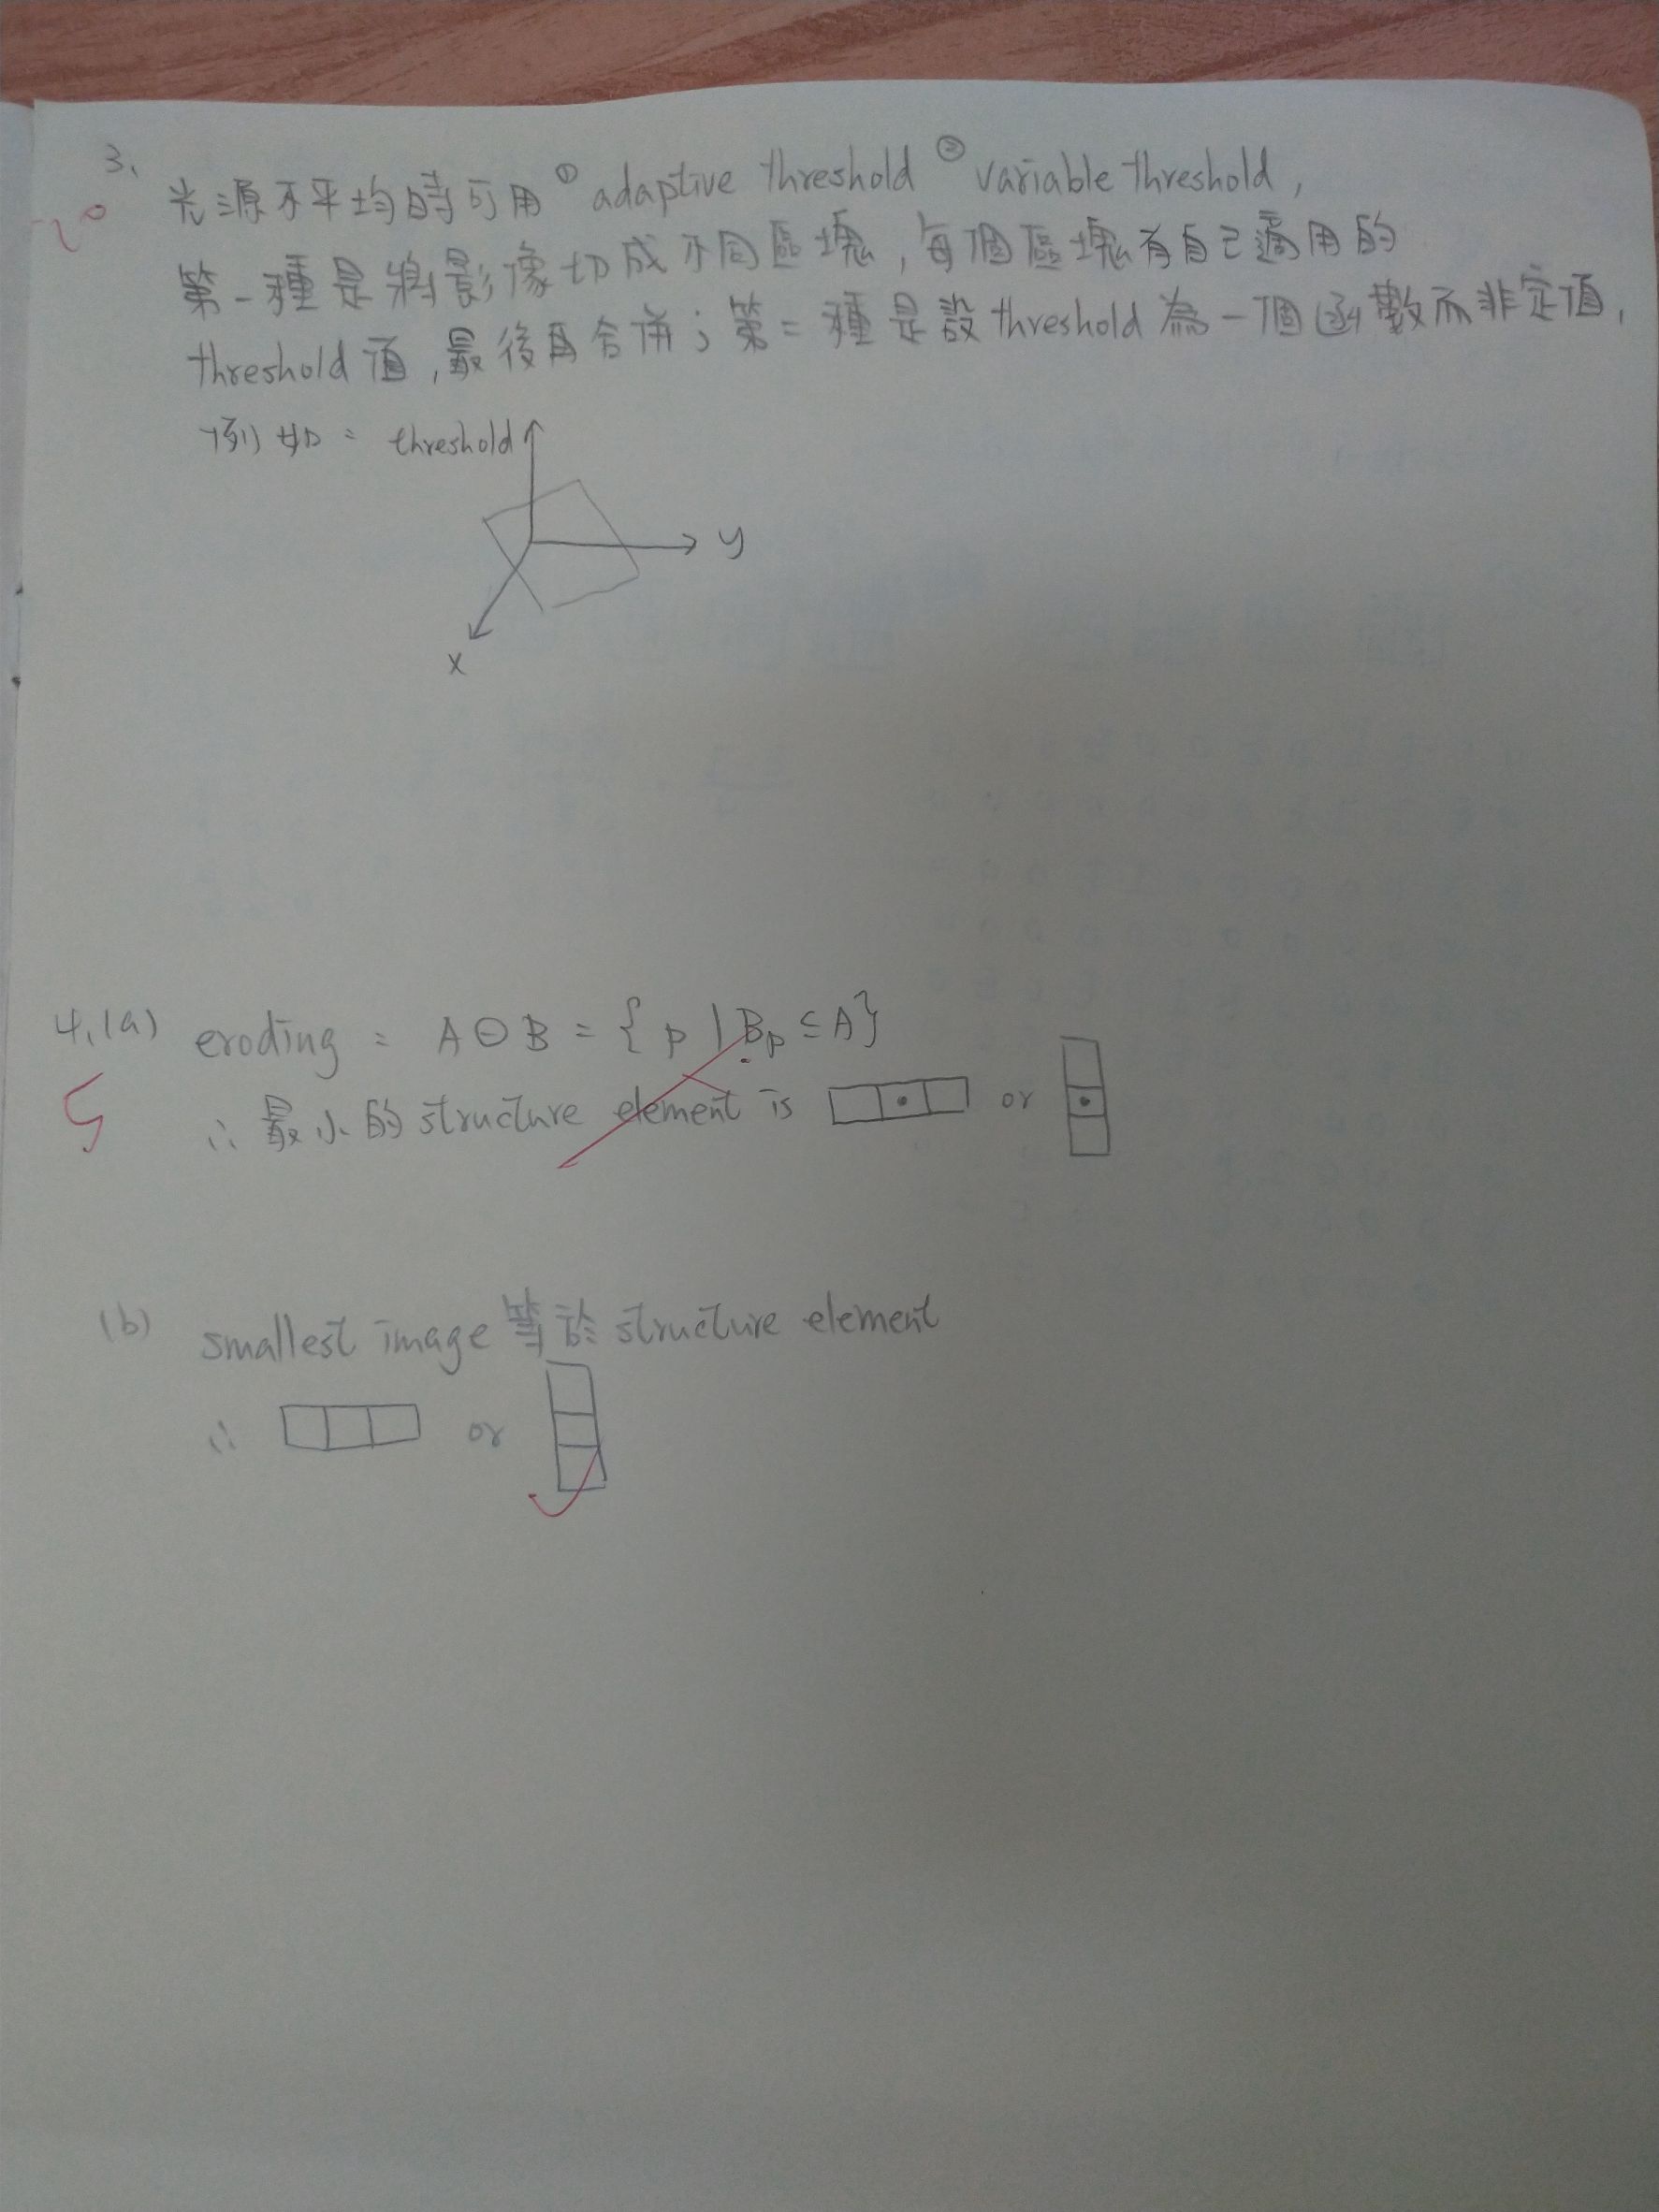 3.
光源不平均時可用 ① adaptive threshold ② variable threshold,
第一種是將影像切成不同區塊,每個區塊有自己適用的
threshold 值,最後再合併;第二種是設 threshold 為一個函數而非定值,
例如: threshold
y
x
4.(a) eroding : A⊖B = { p | Bp ⊆ A }
5
∴ 最小的 structure element is or
(b) smallest image 等於 structure element
∴ or